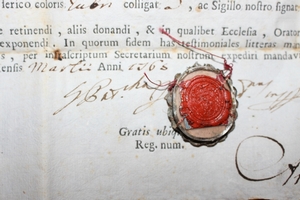 erico coloris rubri colligat , ac Sigillo nostro signa
e retinendi, aliis donandi, & in qualibet Ecclesia, Orato
exponendi. In quorum fidem has testimoniales litteras ma
s, per infrascriptum Secretarium nostrum expediri mandavi
ensis Martii Anni 1768
Gratis ubiq
Reg. num.